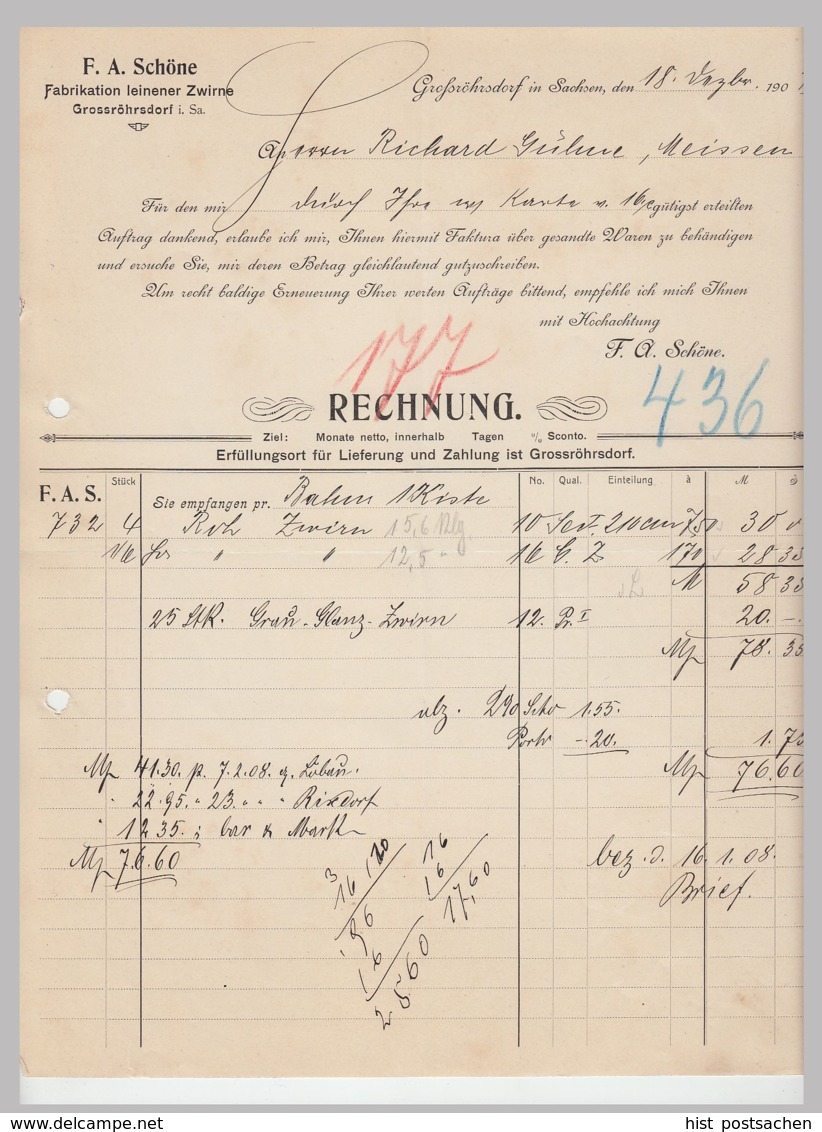 F. A. Schöne
Fabrikation leinener Zwirne
Grossröhrsdorf i. Sa.
Großröhrsdorf in Sachsen, den 18. Dezbr. 190
Herrn Richard Gühne, Meissen
Für den mir durch Ihre Karte v. 16/ gütigst erteilten
Auftrag dankend, erlaube ich mir, Ihnen hiermit Faktura über gesandte Waren zu behändigen
und ersuche Sie, mir deren Betrag gleichlautend gutzuschreiben.
Um recht baldige Erneuerung Ihrer werten Aufträge bittend, empfehle ich mich Ihnen
mit Hochachtung
F. A. Schöne.
177
436
RECHNUNG.
Ziel: Monate netto, innerhalb Tagen % Sconto.
Erfüllungsort für Lieferung und Zahlung ist Grossröhrsdorf.
F. A. S. Stück Sie empfangen pr. Bahn 1 Kiste No. Qual. Einteilung à M
732 4 Roh Zwirn 15,6 10 210 cm 750 30
" " 12,5 " 16 C. Z 28 35
M 58 35
25 Stk. Grau-Glanz-Zwirn 12. Pr. I 20. -
M 78. 35
abz. 2% Scto 1.55.
Porto -.20. 1.75
M 41.30. p. 7.2.08. q. Löbau. M 76.60
" 22.95. " 23. " " " Rixdorf
" 12 35. ; bar & Mark
M 76.60
bez. d. 16. 1. 08.
Brief.
16
120
3
16
16
96
17,60
16
2560
hist postsachen